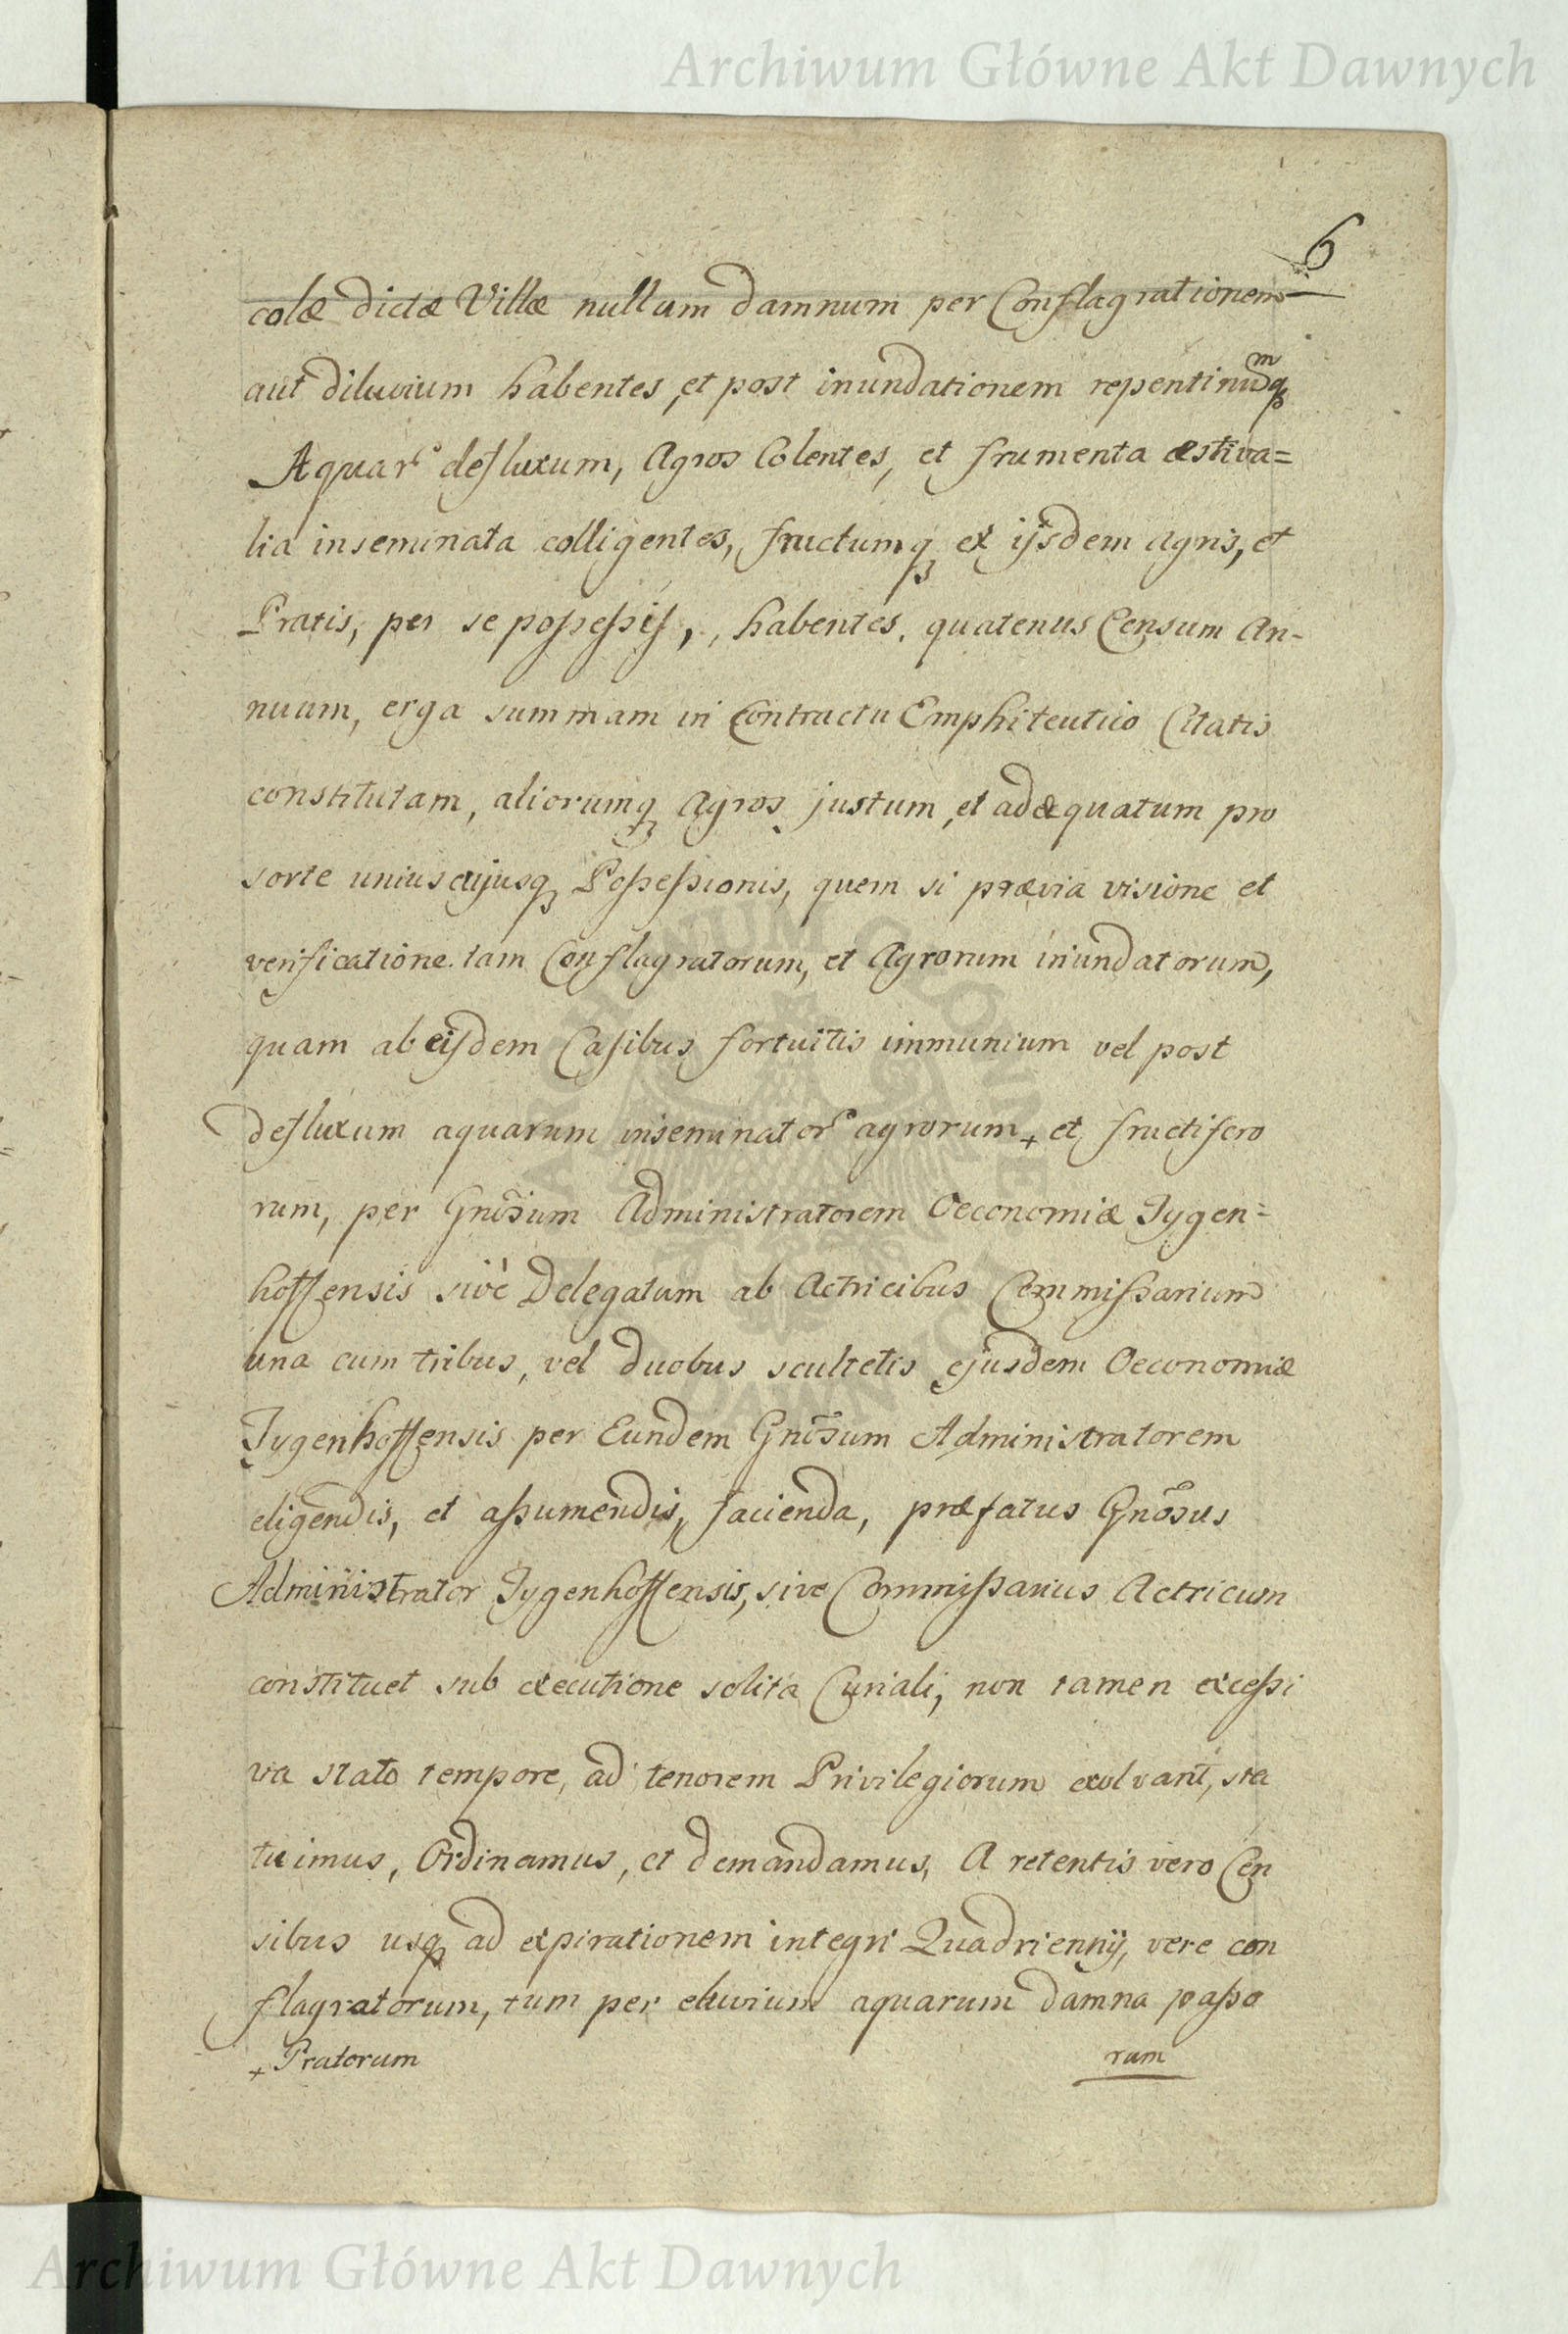 Archiwum Główne Akt Dawnych
6
colæ dictæ Villæ nullum damnum per Conflagrationem
aut diluvium habentes, et post inundationem repentinumq
Aquar defluxum, Agros Colentes, et frumenta æstiva=
lia inseminata colligentes, fructumq ex ijsdem agris, et
Pratis, per se possessis, habentes, quatenus Censum An-
nuum, erga summam in Contractu Emphiteutico Citatis
constitutam, aliorumq Agros justum, et adæquatum pro
sorte uniuscujusq Possessionis, quem si prævia visione et
verificatione tam Conflagratorum, et Agrorum inundatorum,
quam ab eisdem Casibus fortuitis immunium vel post
defluxum aquarum inseminator agrorum + et fructifero
rum, per Gnosum Administratorem Oeconomiæ Tygen=
hoffensis sivè Delegatum ab Actricibus Commissarium
una cum tribus, vel duobus scultetis ejusdem Oeconomiæ
Tygenhoffensis per Eundem Gnosum Administratorem
eligendis, et assumendis, facienda, præfatus Gnosus
Administrator Tygenhoffensis, sive Commissarius Actricum
constituet sub executione solita Curiali, non tamen excessi
va stato tempore, ad tenorem Privilegiorum exolvant, sta
tuimus, Ordinamus, et demandamus, A retentis vero Cen
sibus usq ad expirationem integri Quadriennij, vere con
flagratorum, tum per eluvium aquarum damna passo
+ Pratorum
rum
Archiwum Główne Akt Dawnych